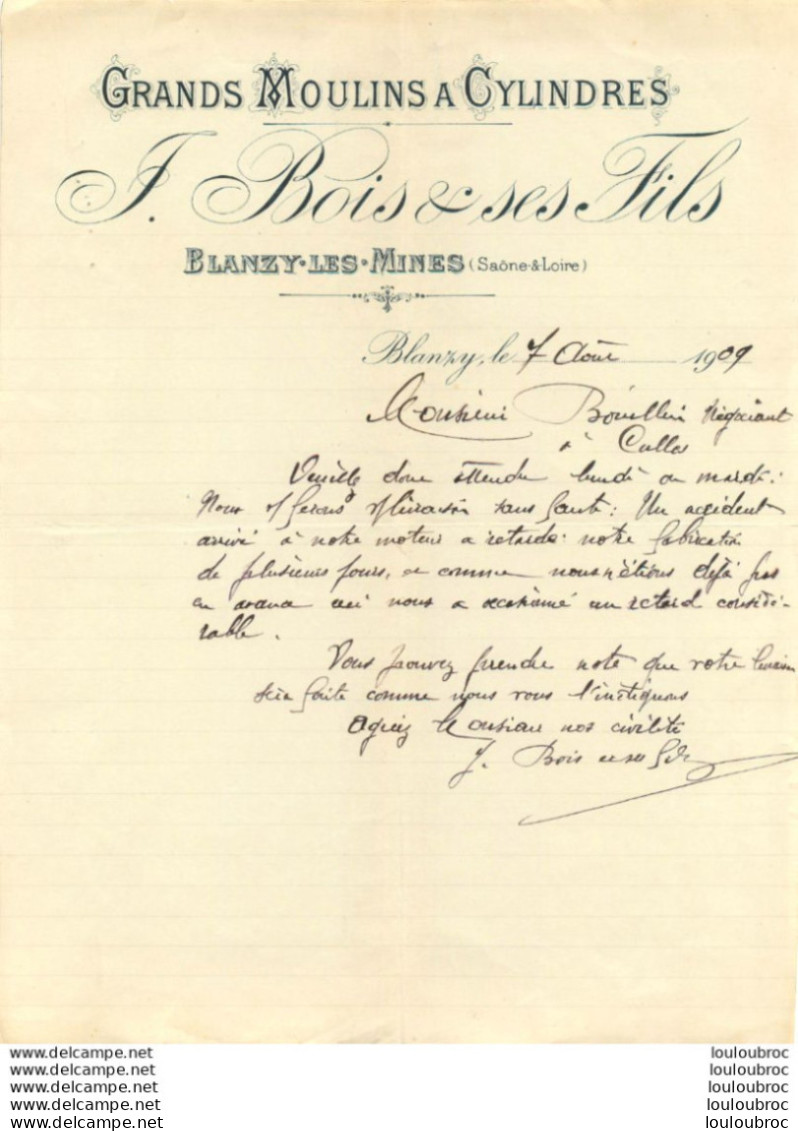 GRANDS MOULINS A CYLINDRES
J. Bois & ses Fils
BLANZY-LES-MINES (Saône-&-Loire)
Blanzy, le 7 Août 1909
Monsieur Négociant
à
Veuillez donc attendre lundi ou mardi:
Nous ferons livraison sans faute: Un accident
arrivé à notre moteur a retardé notre fabrication
de plusieurs jours, et comme nous n'étions déjà pas
en avance ceci nous a occasionné un retard considé-
rable.
Vous pouvez prendre note que votre livraison
sera faite comme nous vous l'indiquons
Agréez Monsieur nos civilités
J. Bois et ses fils
www.delcampe.net
www.delcampe.net
www.delcampe.net
www.delcampe.net
www.delcampe.net
louloubroc
louloubroc
louloubroc
louloubroc
louloubroc